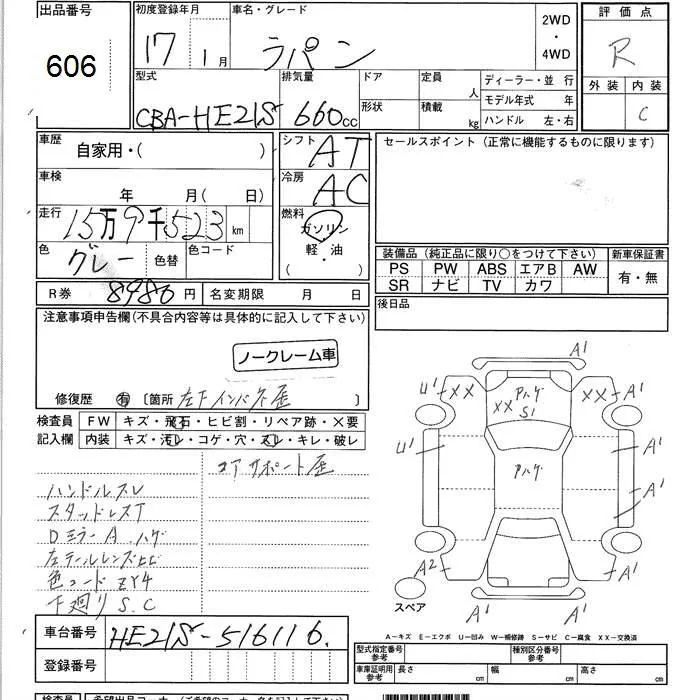 出品番号
606
初度登録年月
17 1月
車名・グレード
ラパン
2WD
・
4WD
評価点
R
外装 内装
C
型式
CBA-HE21S
排気量
660cc
ドア
形状
定員 人
積載 kg
ディーラー・並行
モデル年式 年
ハンドル 左・右
車歴
自家用・( )
車検
年 月( 日)
走行
15万9千523km
色
グレー
色替
色コード
シフト
AT
冷房
AC
燃料
ガソリン
軽・油
( )
Rケン 8980円
名変期限 月 日
セールスポイント(正常に機能するものに限ります)
装備品(純正品に限り○をつけて下さい)
PS PW ABS エアB AW
SR ナビ TV カワ
新車保証書
有・無
後日品
注意事項申告欄(不具合内容等は具体的に記入して下さい)
ノークレーム車
修復歴 有 〔箇所 左下インパネ歪 〕
検査員
記入欄
FW キズ・飛石・ヒビ割・リペア跡・X要
内装 キズ・汚レ・コゲ・穴・スレ・キレ・破レ
コアサポート歪
ハンドルスレ
スタッドレスT
Dミラー A.ハゲ
左テールレンズヒビ
色コード ZY4
下廻り S.C
A1
U1 XX
Pハゲ
XX S1
XX A1
U1
A1
Pハゲ
A1
A2
A1
A1
A1
スペア
A-キズ E-エクボ U-凹み W-補修跡 S-サビ C-腐食 XX-交換済
車台番号
HE21S-516116.
登録番号
型式指定番号
参考
種別区分番号
参考
車庫証明用
参考
長さ cm
幅 cm
高さ cm